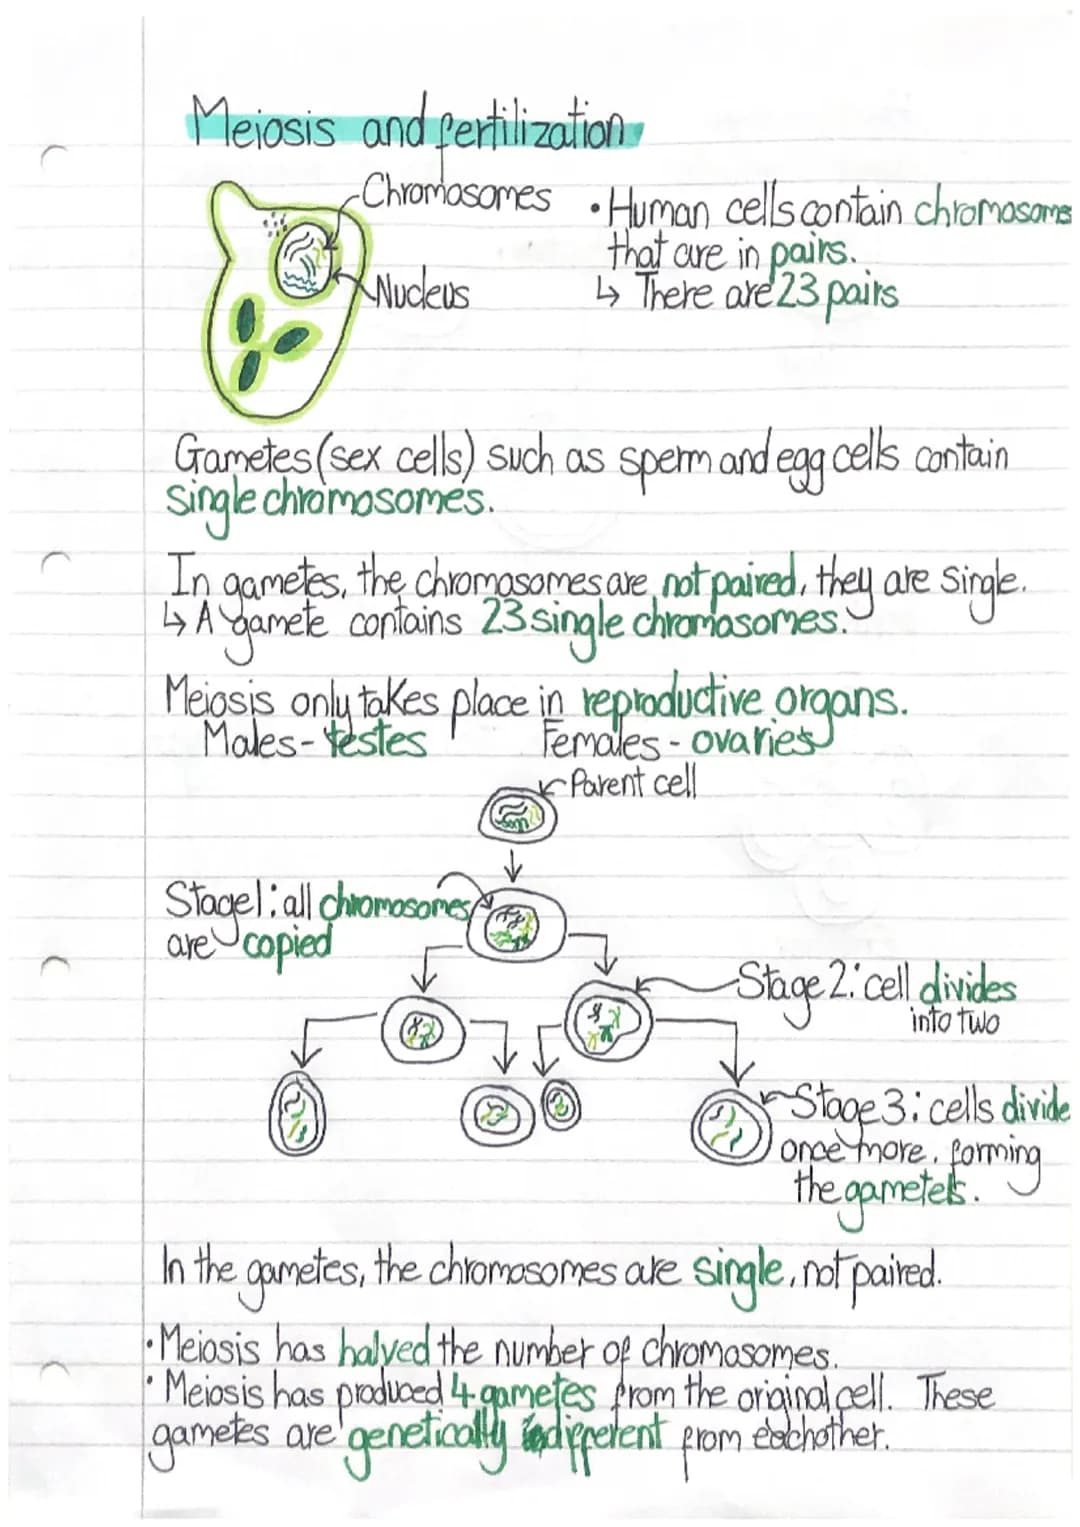 Meiosis and fertilization
Chromosomes
• Human cells contain chromosomes
that are in pairs.
↳ There are 23 pairs
Nucleus
Gametes (sex cells) such as sperm and egg cells contain
single chromosomes.
In gametes, the chromosomes are not paired, they are single.
↳ A gamete contains 23 single chromosomes.
Meiosis only takes place in reproductive organs.
Males - testes Females - ovaries
Parent cell
Stage 1: all chromosomes
are copied
Stage 2: cell divides
into two
Stage 3: cells divide
once more, forming
the gametes.
In the gametes, the chromosomes are single, not paired.
• Meiosis has halved the number of chromosomes.
• Meiosis has produced 4 gametes from the original cell. These
gametes are genetically different from eachother.